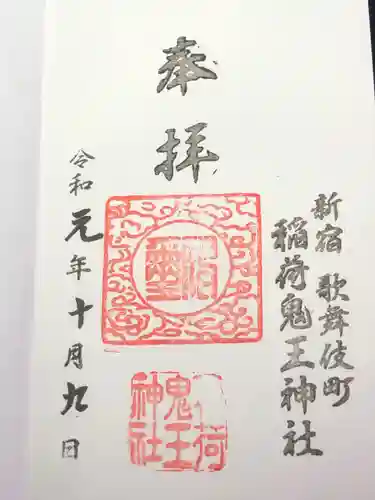 新宿 歌舞伎町
稲荷鬼王神社
奉拝
荷
鬼王
神社
令和元年十月九日